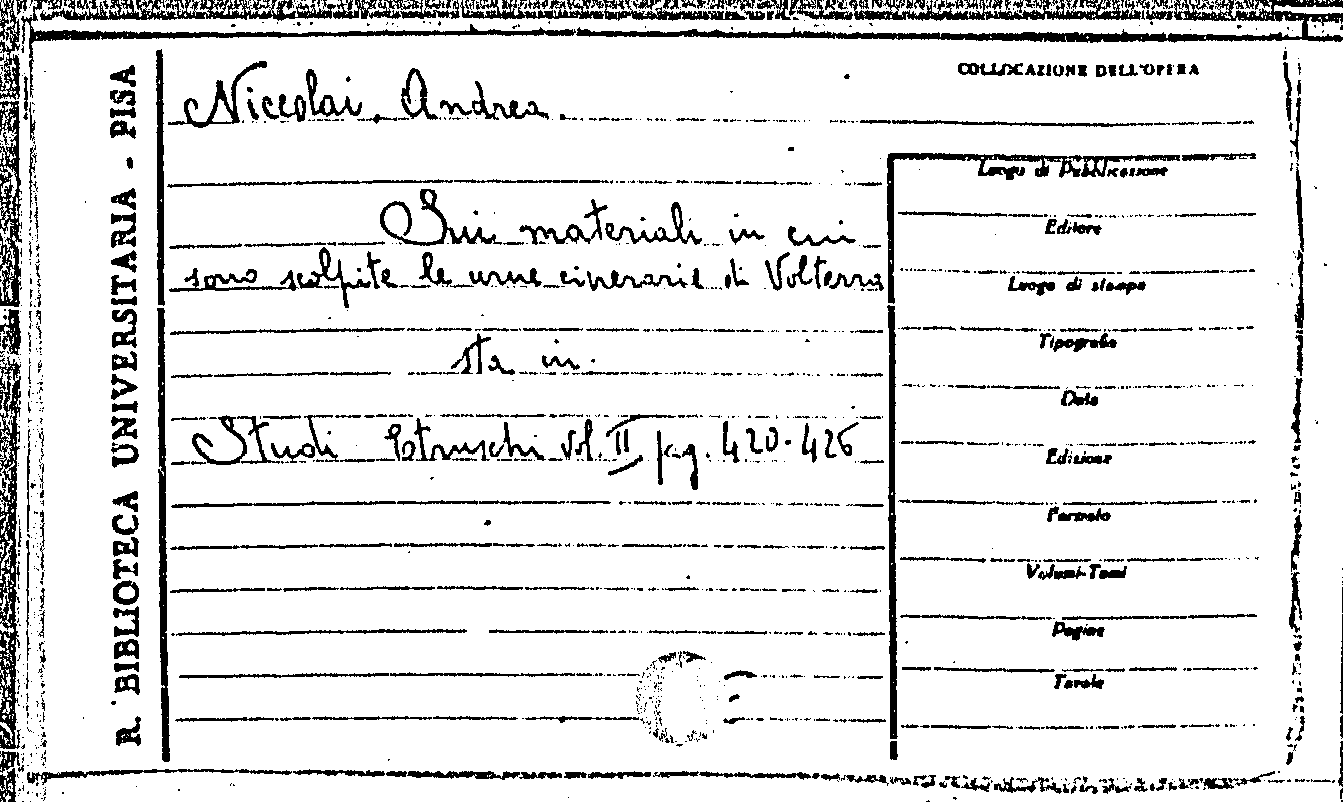 R. BIBLIOTECA UNIVERSITARIA - PISA
Niccolai, Andrea.
COLLOCAZIONE DELL'OPERA
Sui materiali in cui
sono scolpite le urne cinerarie di Volterra
sta in.
Studi Etruschi vol. II pag. 420-426
Luogo di Pubblicazione
Editore
Luogo di stampa
Tipografia
Data
Edizione
Formato
Volumi-Tomi
Pagine
Tavole